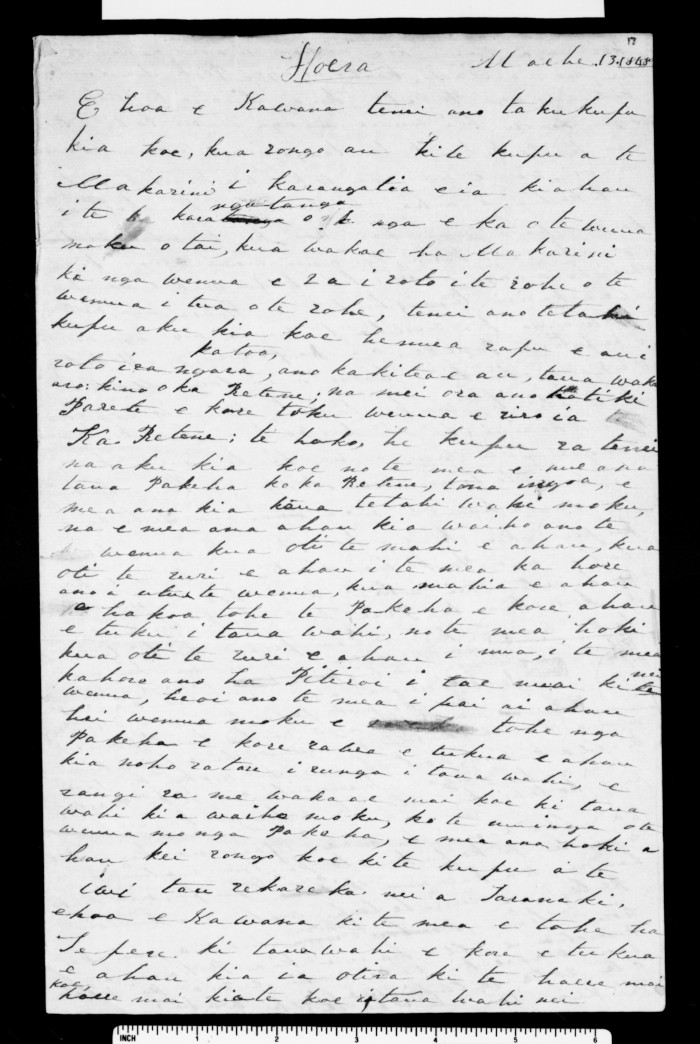 13
Hoera Mache. 13. 1848
E hoa e Kawana tenei ano taku kupu
kia koe, kua rongo au ki te kupu a te
Makarini i karangatia e ia kiahau
i te karangatanga o nga e ka o te wenua
moku o tai, kua wakae ha Makarini
ki nga wenua e ra i roto i te rohe o te
wenua i tua o te rohe, tenei ano tetahi
kupu aku kia koe hemea rapu e au i
katoa,
roto i ra ngara, ano ka kitea e au, taua waka
aro: kino o ka Retene; na mei ora ano ki
Parete e kore toku wenua e riro ia
Ka Retene; te hoko, he kupu ra tenei
na aku kia koe no te mea e mea ana
taua Pakeha ko ka Retene, tona ingoa, e
mea ana kia kaua tetahi wahi moku,
na e mea ana ahau kia waiho ano te
wenua kua oti te mahi e ahau, kua
oti te ruri e ahau i te mea ka hore
ano i utu te wenua, kua mahia e ahau
e ha koa tohe te Pakeha e kore ahau
e tuku i taua wahi, no te mea hoki
kua oti te ruri e ahau i mua, i te mea
kahore ano ha Piteroi i tae mai ki te nei
wenua, heoi ano te mea i pai ai ahau
hei wenua moku e tohe nga
Pakeha e kore rawa e tukua e ahau
kia noho ratau i runga i taua wahi, e
rangi ra me wakaae mai koe ki taua
wahi kia waiho moku, ko te nuinga ote
wenua mo nga Pakeha, e mea ana hoki a
hau kei rongo koe ki te kupu a te
iwi tau rekareka nei a Taranaki,
ehoa e Kawana ki te mea e tohe ha
Te pere ki taua wahi e kore e tukua
e ahau kia ia otira ki te haere mai
koe, haere mai kiate koe i taua wahi nei
INCH 1 2 3 4 5 6